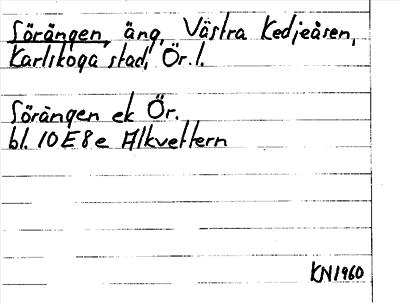 Sörängen, äng, Västra Kedjeåsen,
Karlskoga stad, Ör. l.
Sörängen ek Ör.
bl. 10 E 8 e Alkvettern
KN 1960